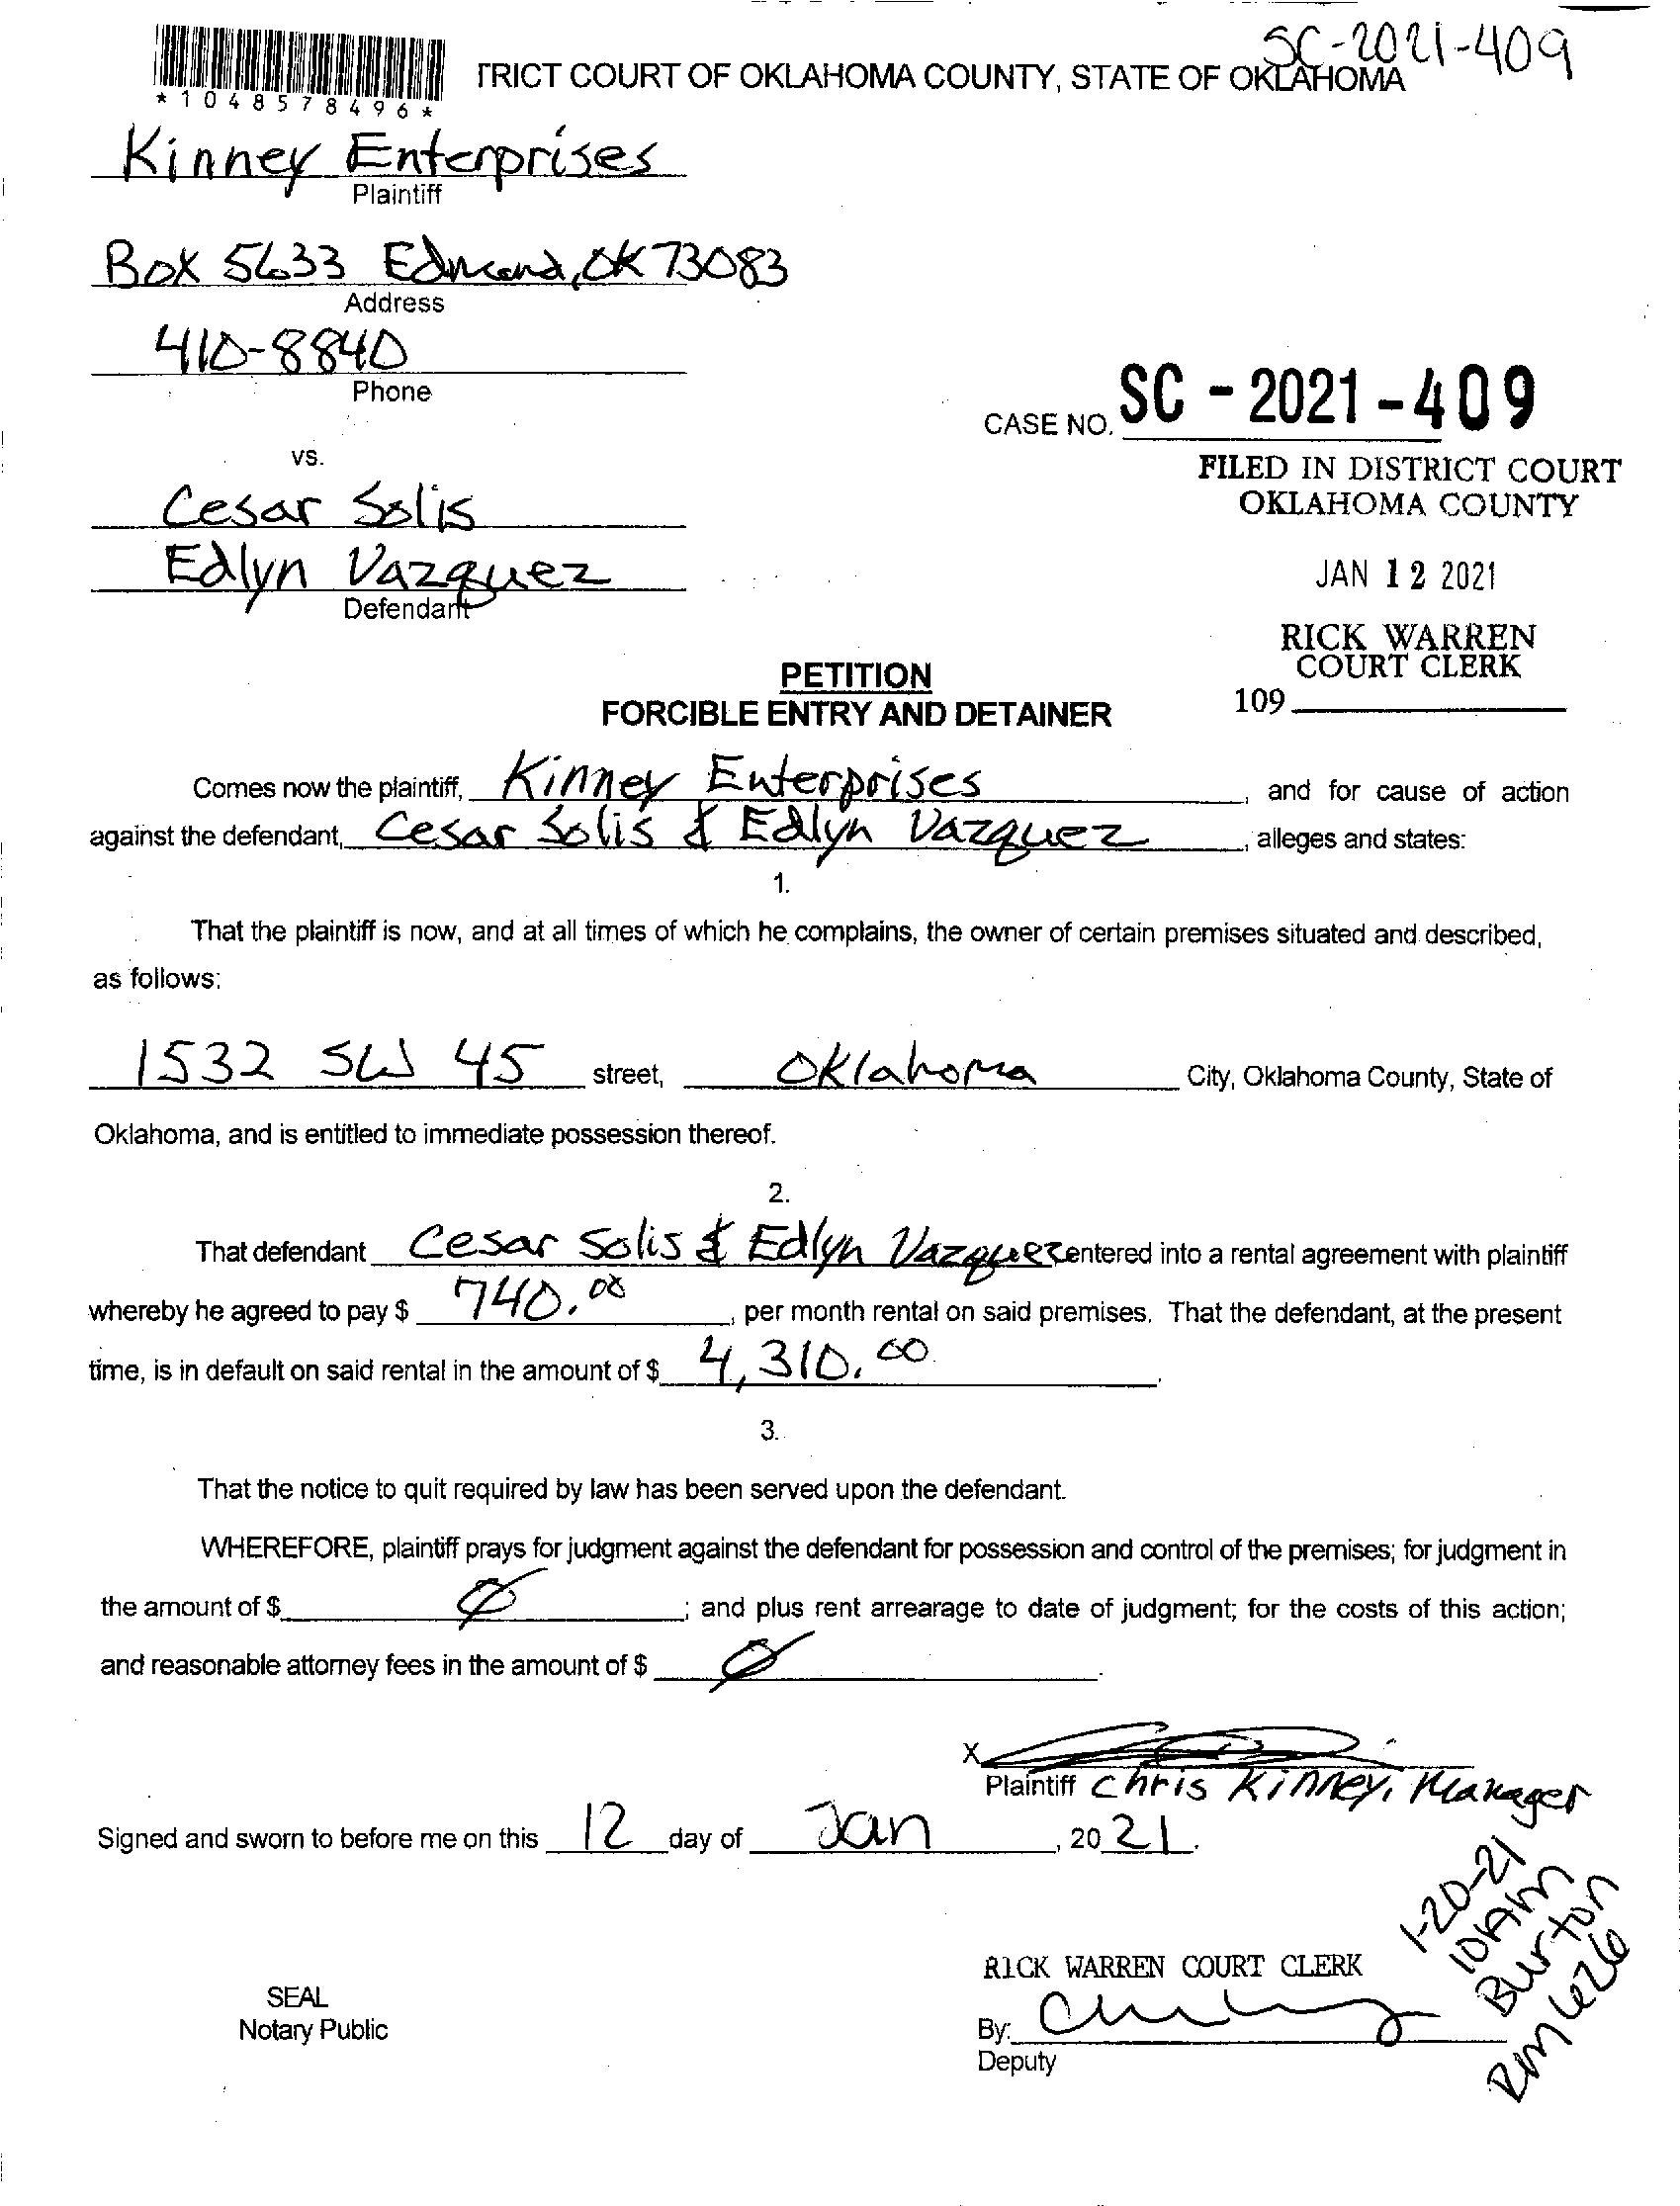 SC-2021-409
TRICT COURT OF OKLAHOMA COUNTY, STATE OF OKLAHOMA
*1048578496*
Kinney Enterprises
Plaintiff
Box 5633 Edmond, OK 73083
Address
410-8840
Phone
CASE NO. SC - 2021 - 409
vs.
FILED IN DISTRICT COURT
OKLAHOMA COUNTY
Cesar Solis
Edlyn Vazquez
Defendant
JAN 12 2021
RICK WARREN
COURT CLERK
109
PETITION
FORCIBLE ENTRY AND DETAINER
Comes now the plaintiff, Kinney Enterprises, and for cause of action
against the defendant, Cesar Solis & Edlyn Vazquez, alleges and states:
1.
That the plaintiff is now, and at all times of which he complains, the owner of certain premises situated and described,
as follows:
1532 SW 45 street, Oklahoma City, Oklahoma County, State of
Oklahoma, and is entitled to immediate possession thereof.
2.
That defendant Cesar Solis & Edlyn Vazquez entered into a rental agreement with plaintiff
whereby he agreed to pay $ 740.00, per month rental on said premises. That the defendant, at the present
time, is in default on said rental in the amount of $ 4,310.00.
3.
That the notice to quit required by law has been served upon the defendant.
WHEREFORE, plaintiff prays for judgment against the defendant for possession and control of the premises; for judgment in
the amount of $ Ø; and plus rent arrearage to date of judgment; for the costs of this action;
and reasonable attorney fees in the amount of $ Ø.
X
Plaintiff Chris Kinney, Manager
Signed and sworn to before me on this 12 day of Jan, 2021.
1-20-21
10AM
Burton
RM 626
RICK WARREN COURT CLERK
SEAL
Notary Public
By:
Deputy